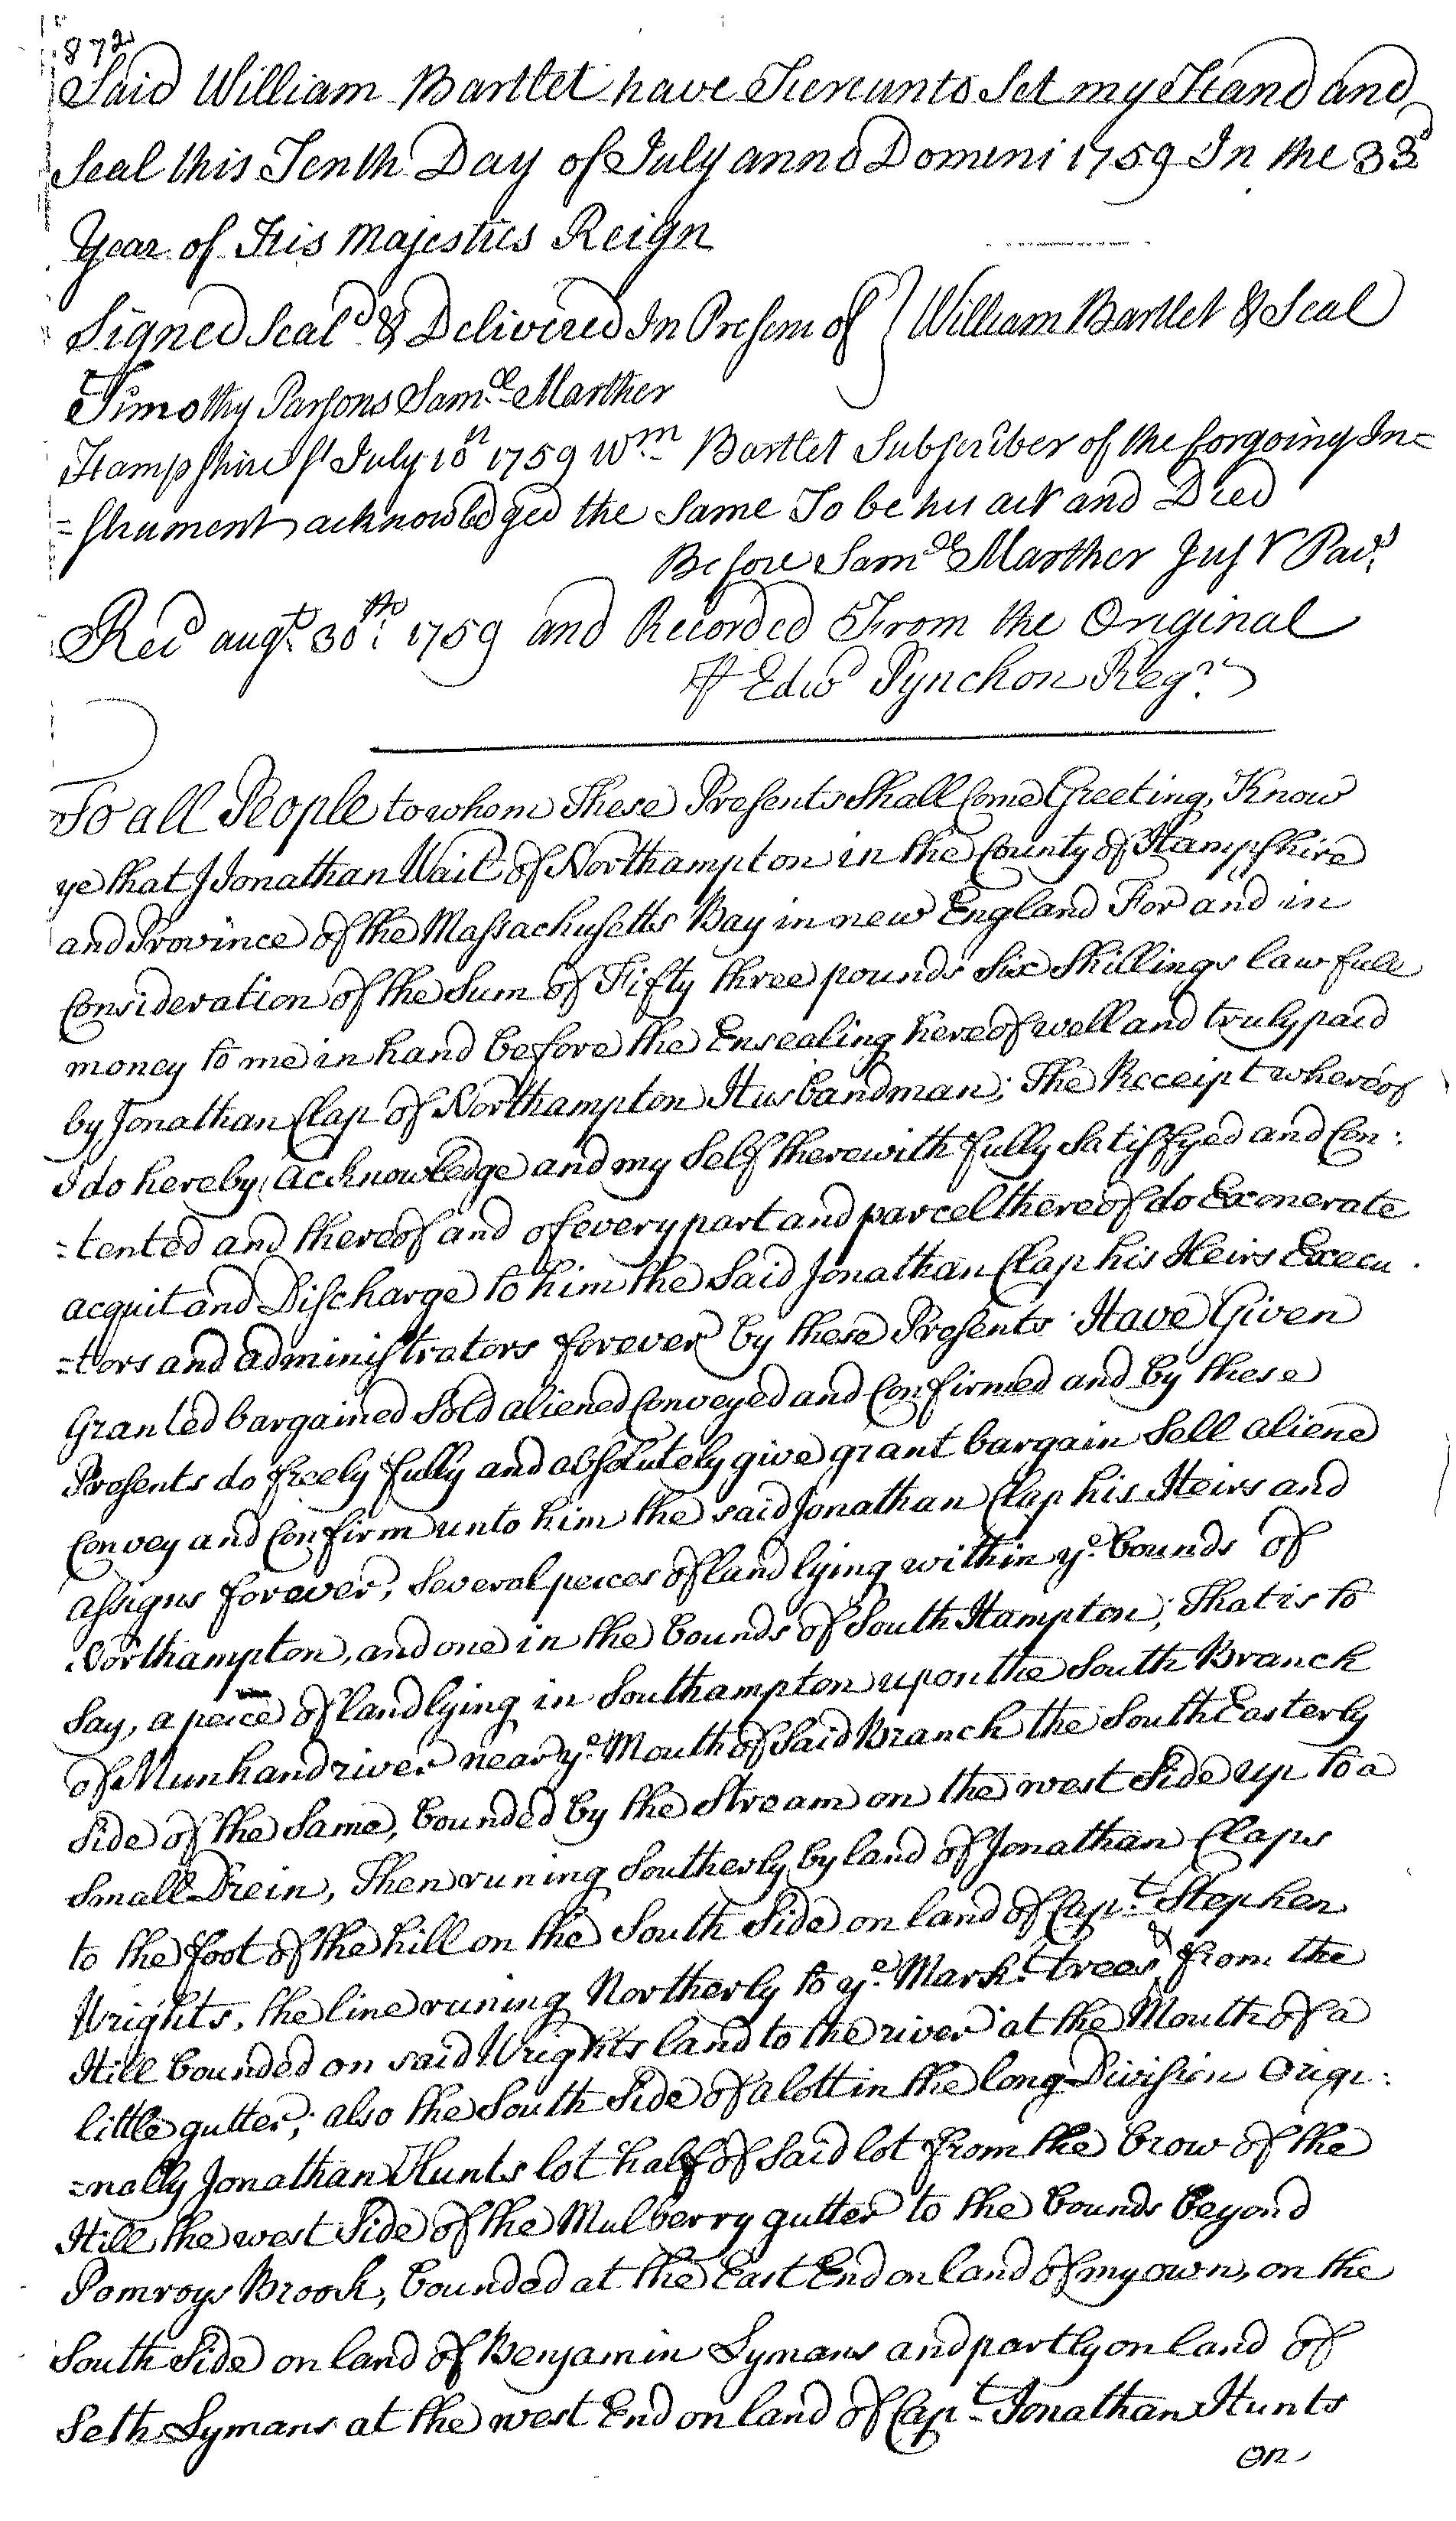 872
Said William Bartlet have Hereunto Set my Hand and
Seal this Tenth Day of July anno Domeni 1759 In the 33d
Year of His Majesties Reign
Signed Seald & Delivered In Presenc of } William Bartlet & Seal
Timothy Parsons Saml. Marther
Hampshire ss July 10th 1759 Wm Bartlet Subscriber of the forgoing In=
=strument acknowledged the Same To be his act and Deed
Before Saml Marther Just Pac.
Recd augt. 30th: 1759 and Recorded From the Original
⅌ Edwd Pynchon Regr.
To all People to whom These Presents Shall Come Greeting, Know
ye that I Jonathan Wait of Northampton in the County of Hampshire
and Province of the Massachusetts Bay in new England For and in
Consideration of the Sum of Fifty three pounds Six Shillings law full
money to me in hand before the Ensealing hereof well and truly paid
by Jonathan Clap of Northampton Husbandman; The Receipt whereof
I do hereby acknowledge and my Self therewith fully Satisfyed and Con:
=tented and thereof and of every part and parcel thereof do Exonerate
acquit and Discharge to him the Said Jonathan Clap his Heirs Execu
=tors and administrators forever by these Presents Have Given
Granted bargained Sold aliened Conveyed and Confirmed and by these
Presents do freely fully and absolutely give grant bargain Sell aliene
Convey and Confirm unto him the said Jonathan Clap his Heirs and
assigns forever, Several peices of land lying within ye. bounds of
Northampton, and one in the bounds of South Hampton; That is to
Say, a peice of land lying in Southampton upon the South Branch
of Munhand river near ye. Mouth of Said Branch the South Easterly
Side of the Same, bounded by the Stream on the west Side up to a
Small Drein, Then runing Southerly by land of Jonathan Claps
to the foot of the hill on the South Side on land of Capt. Stephen
Wrights, the line runing Northerly to ye. Markt. trees & from the
Hill bounded on said Wrights land to the river at the Mouth of a
little gutter; also the South Side of a lott in the long Division Origi:
=nally Jonathan Hunts lot half of Said lot from the brow of the
Hill the west Side of the Mulberry gutter to the bounds beyond
Pomroys Brook, bounded at the East End on land of my own, on the
South Side on land of Benjamin Lymans and partly on land of
Seth Lymans at the west End on land of Capt. Jonathan Hunts
on